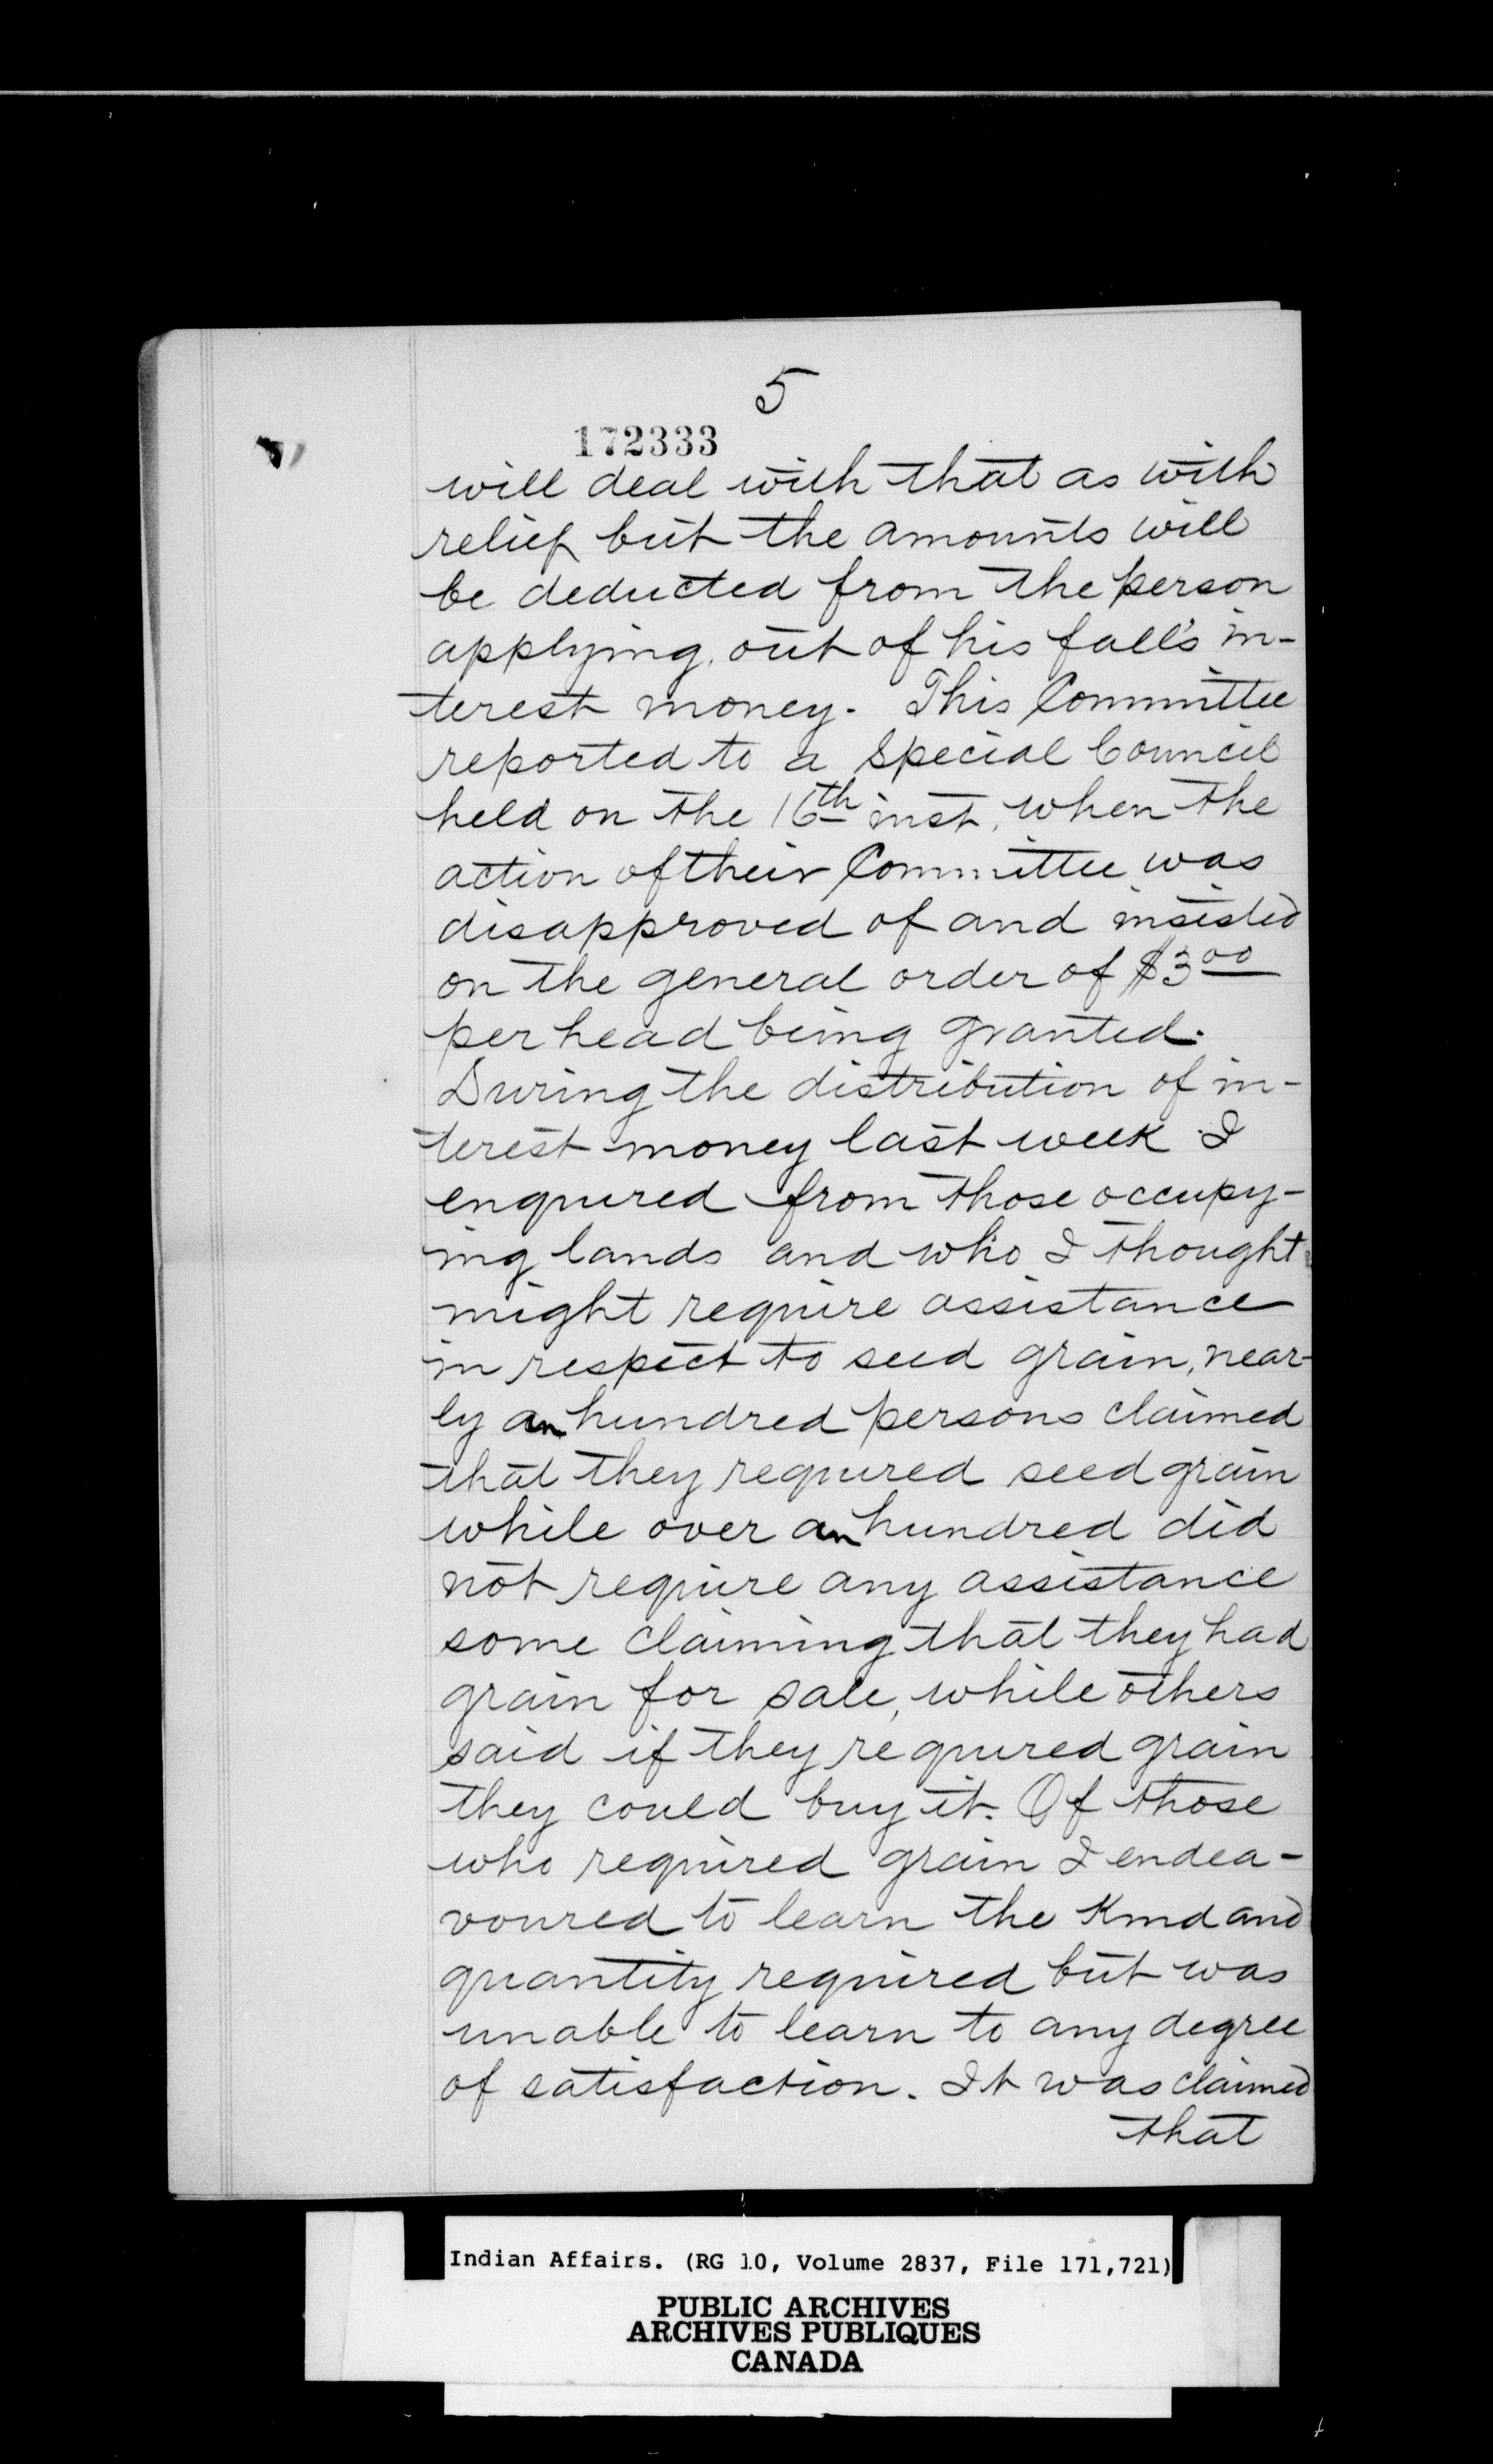 5
172333
will deal with that as with
relief but the amounts will
be deducted from the person
applying, out of his fall's in-
terest money. This Committee
reported to a Special Council
held on the 16th inst, when the
action of their Committee was
disapproved of and insisted
on the general order of $3.00
per head being granted.
During the distribution of in-
terest money last week I
enquired from those occupy-
ing lands and who I thought
might require assistance
in respect to seed grain, near-
ly an hundred persons claimed
that they required seed grain
while over an hundred did
not require any assistance
some claiming that they had
grain for sale, while others
said if they required grain
they could buy it. Of those
who required grain I endea-
voured to learn the kind and
quantity required but was
unable to learn to any degree
of satisfaction. It was claimed
that
Indian Affairs. (RG 10, Volume 2837, File 171,721)
PUBLIC ARCHIVES
ARCHIVES PUBLIQUES
CANADA